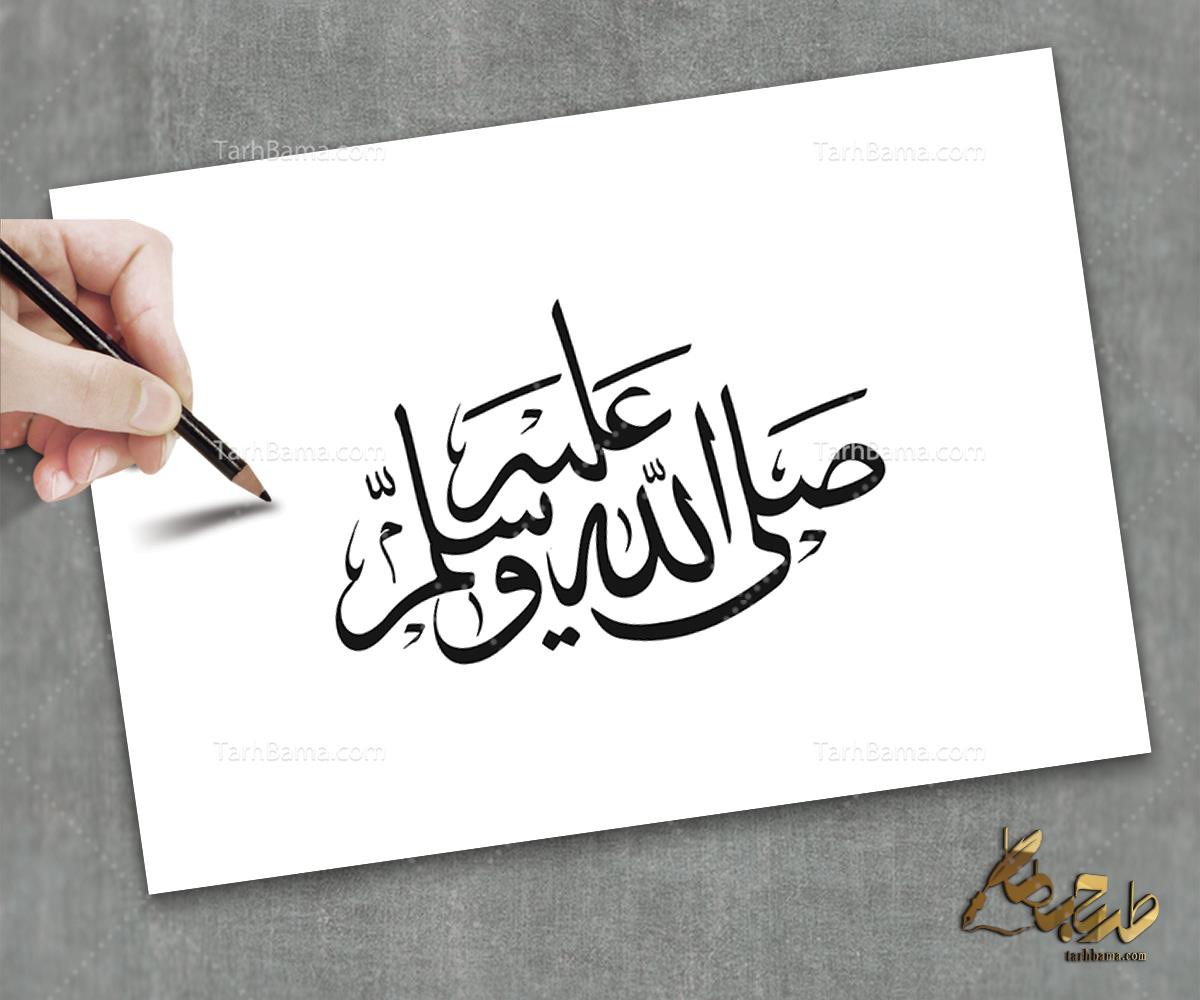 TarhBama.com TarhBama.com
صلى الله عليه وسلم
TarhBama.com TarhBama.com
TarhBama.com TarhBama.com
طرح باما
tarhbama.com